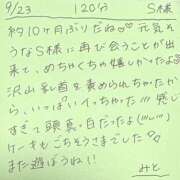 9/23　120分　S様
約10ヶ月ぶりだね♡♡ 元気そ
うなS様に再び会うことが出
来て、めちゃくちゃ嬉しかったよ
沢山乳首を責められちゃたか
ら、いっぱいイっちゃった!!! 感じ
すぎて頭真っ白だったよ(///)
ケーキもごちそうさまでした
また遊ぼうね!!
みと